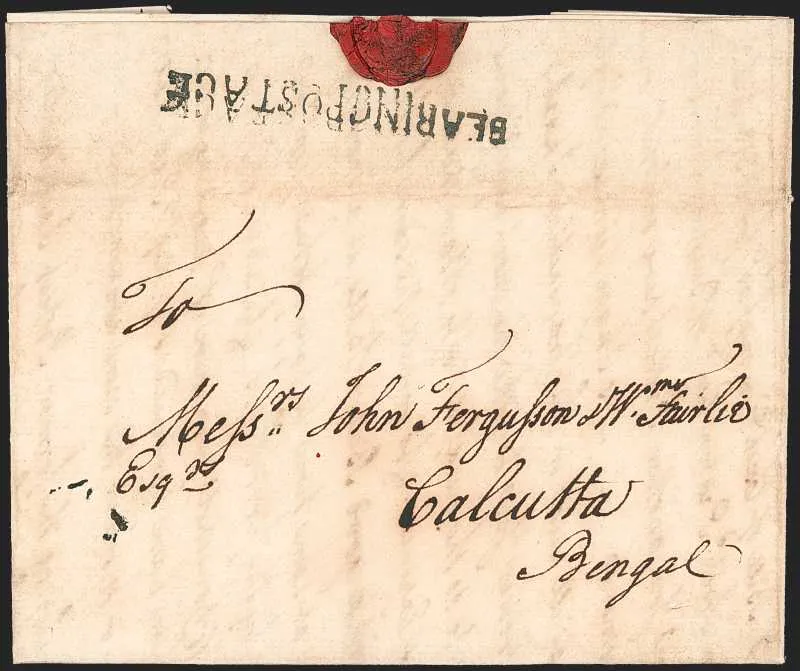 BEARING POSTAGE
To
Messrs John Fergusson & Wm. Fairlie
Esqrs
Calcutta
Bengal